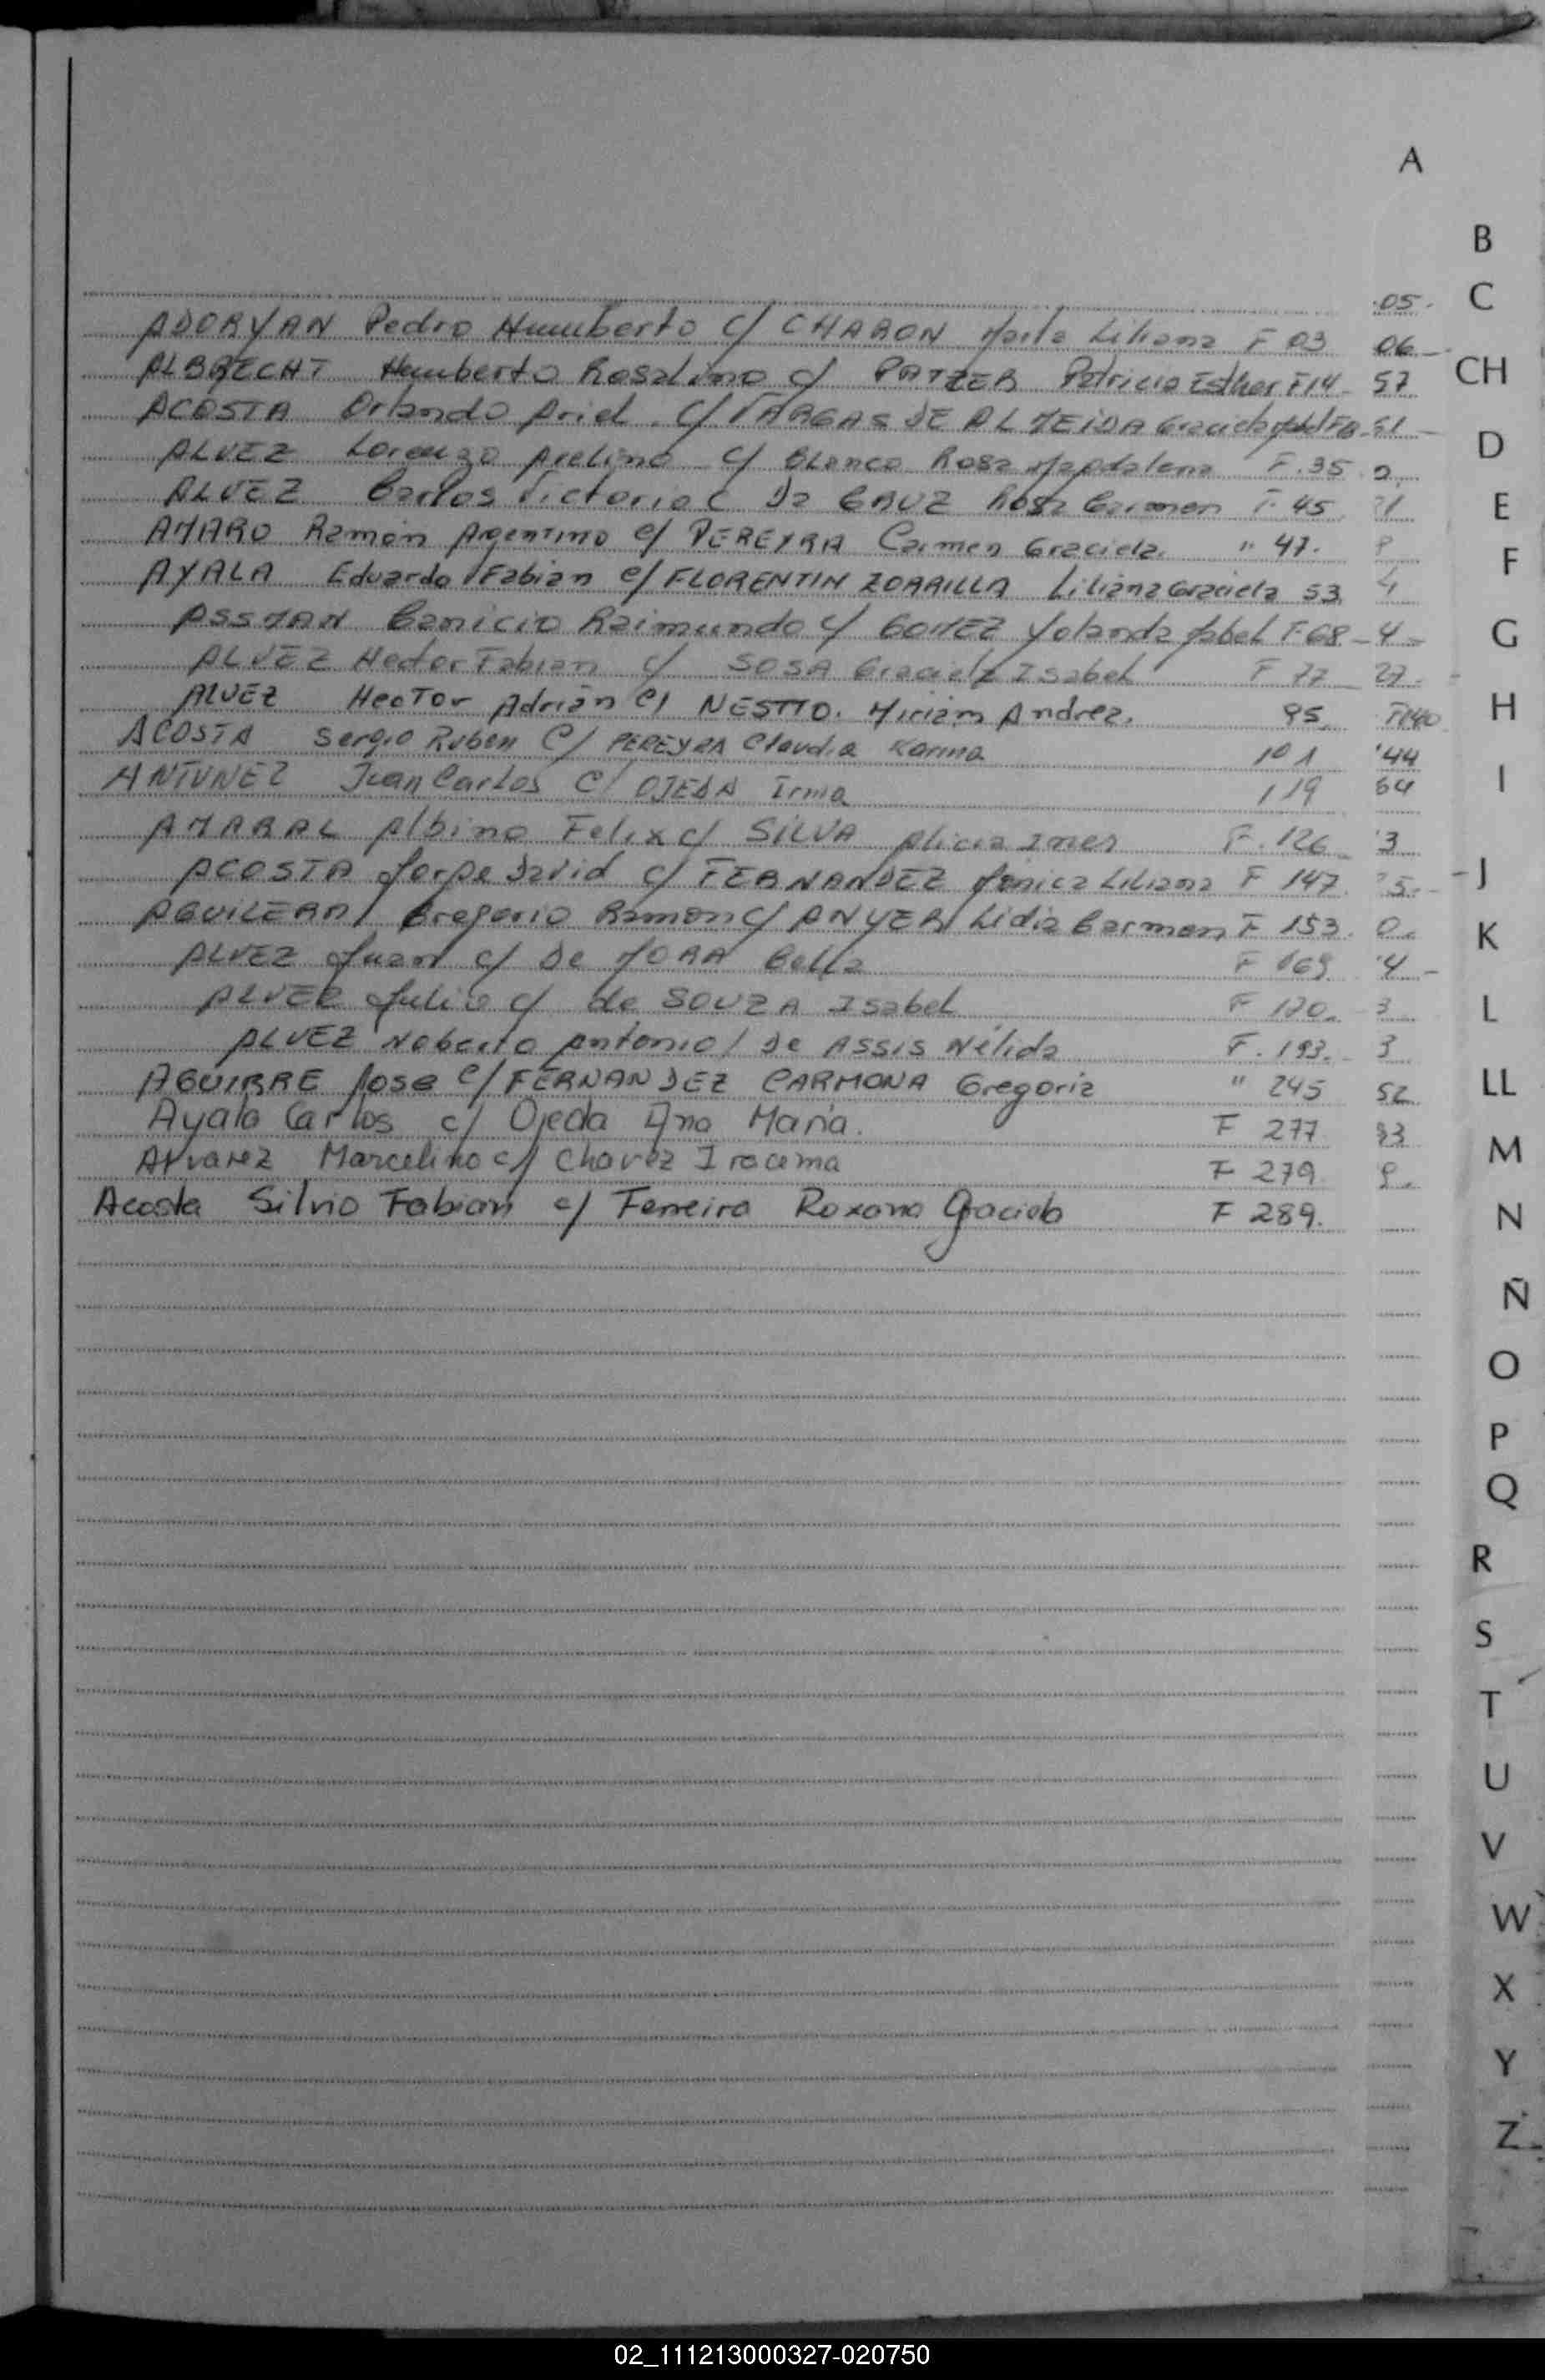 A
ADORYAN Pedro Humberto c/ CHARON Marta Liliana F 03
ALBRECHT Humberto Rosalino c/ PATZER Patricia Esther F 14
ACOSTA Orlando Ariel c/ VARGAS DE ALMEIDA Graciela
ALVEZ Lorenzo Avelino c/ Blanco Rosa Magdalena F. 35
ALVEZ Carlos Victorio c Da CRUZ Rosa Carmen F. 45
AMARO Ramón Argentino c/ PEREYRA Carmen Graciela. " 47.
AYALA Eduardo Fabian c/ FLORENTIN ZORRILLA Liliana Graciela 53
ASSMAN Canicio Raimundo c/ GOMEZ Yolanda Isabel F. 68
ALVEZ Hector Fabian c/ SOSA Graciela Isabel F 77
ALVEZ Hector Adrián c/ NESTTO. Miriam Andrea. 95
ACOSTA Sergio Ruben C/ PEREYRA Claudia Karina 101
ANTUNEZ Juan Carlos C/ OJEDA Irma 119
AMARAL Albino Felix c/ SILVA Alicia Ines F. 126
ACOSTA Jorge David c/ FERNANDEZ Monica Liliana F 147
AGUILERA Gregorio Ramon c/ ANYER Lidia Carmen F 153.
ALVEZ Juan c/ De MORA Bella F 169
ALVEZ Julio c/ de SOUZA Isabel F 170.
ALVEZ Noberto Antonio / De ASSIS Nélida F. 193.
AGUIRRE Jose c/ FERNANDEZ CARMONA Gregoria " 245
Ayala Carlos c/ Ojeda Ana Maria. F 277
Alvarez Marcelino c/ Chavez Iracema F 279
Acosta Silvio Fabian c/ Ferreira Roxana Graciela F 289.
05
06
57
51
4
27
F140
44
64
3
5
0
4
3
3
52
93
B
C
CH
D
E
F
G
H
I
J
K
L
LL
M
N
Ñ
O
P
Q
R
S
T
U
V
W
X
Y
Z
02_111213000327-020750